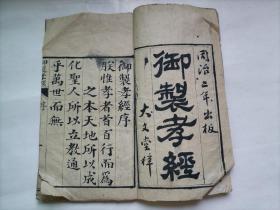 同治二年出板
御製孝經
大文堂梓
御製孝經序
朕惟孝者首百行而爲
之本天地所以成
化聖人所以立教通
乎萬世而無